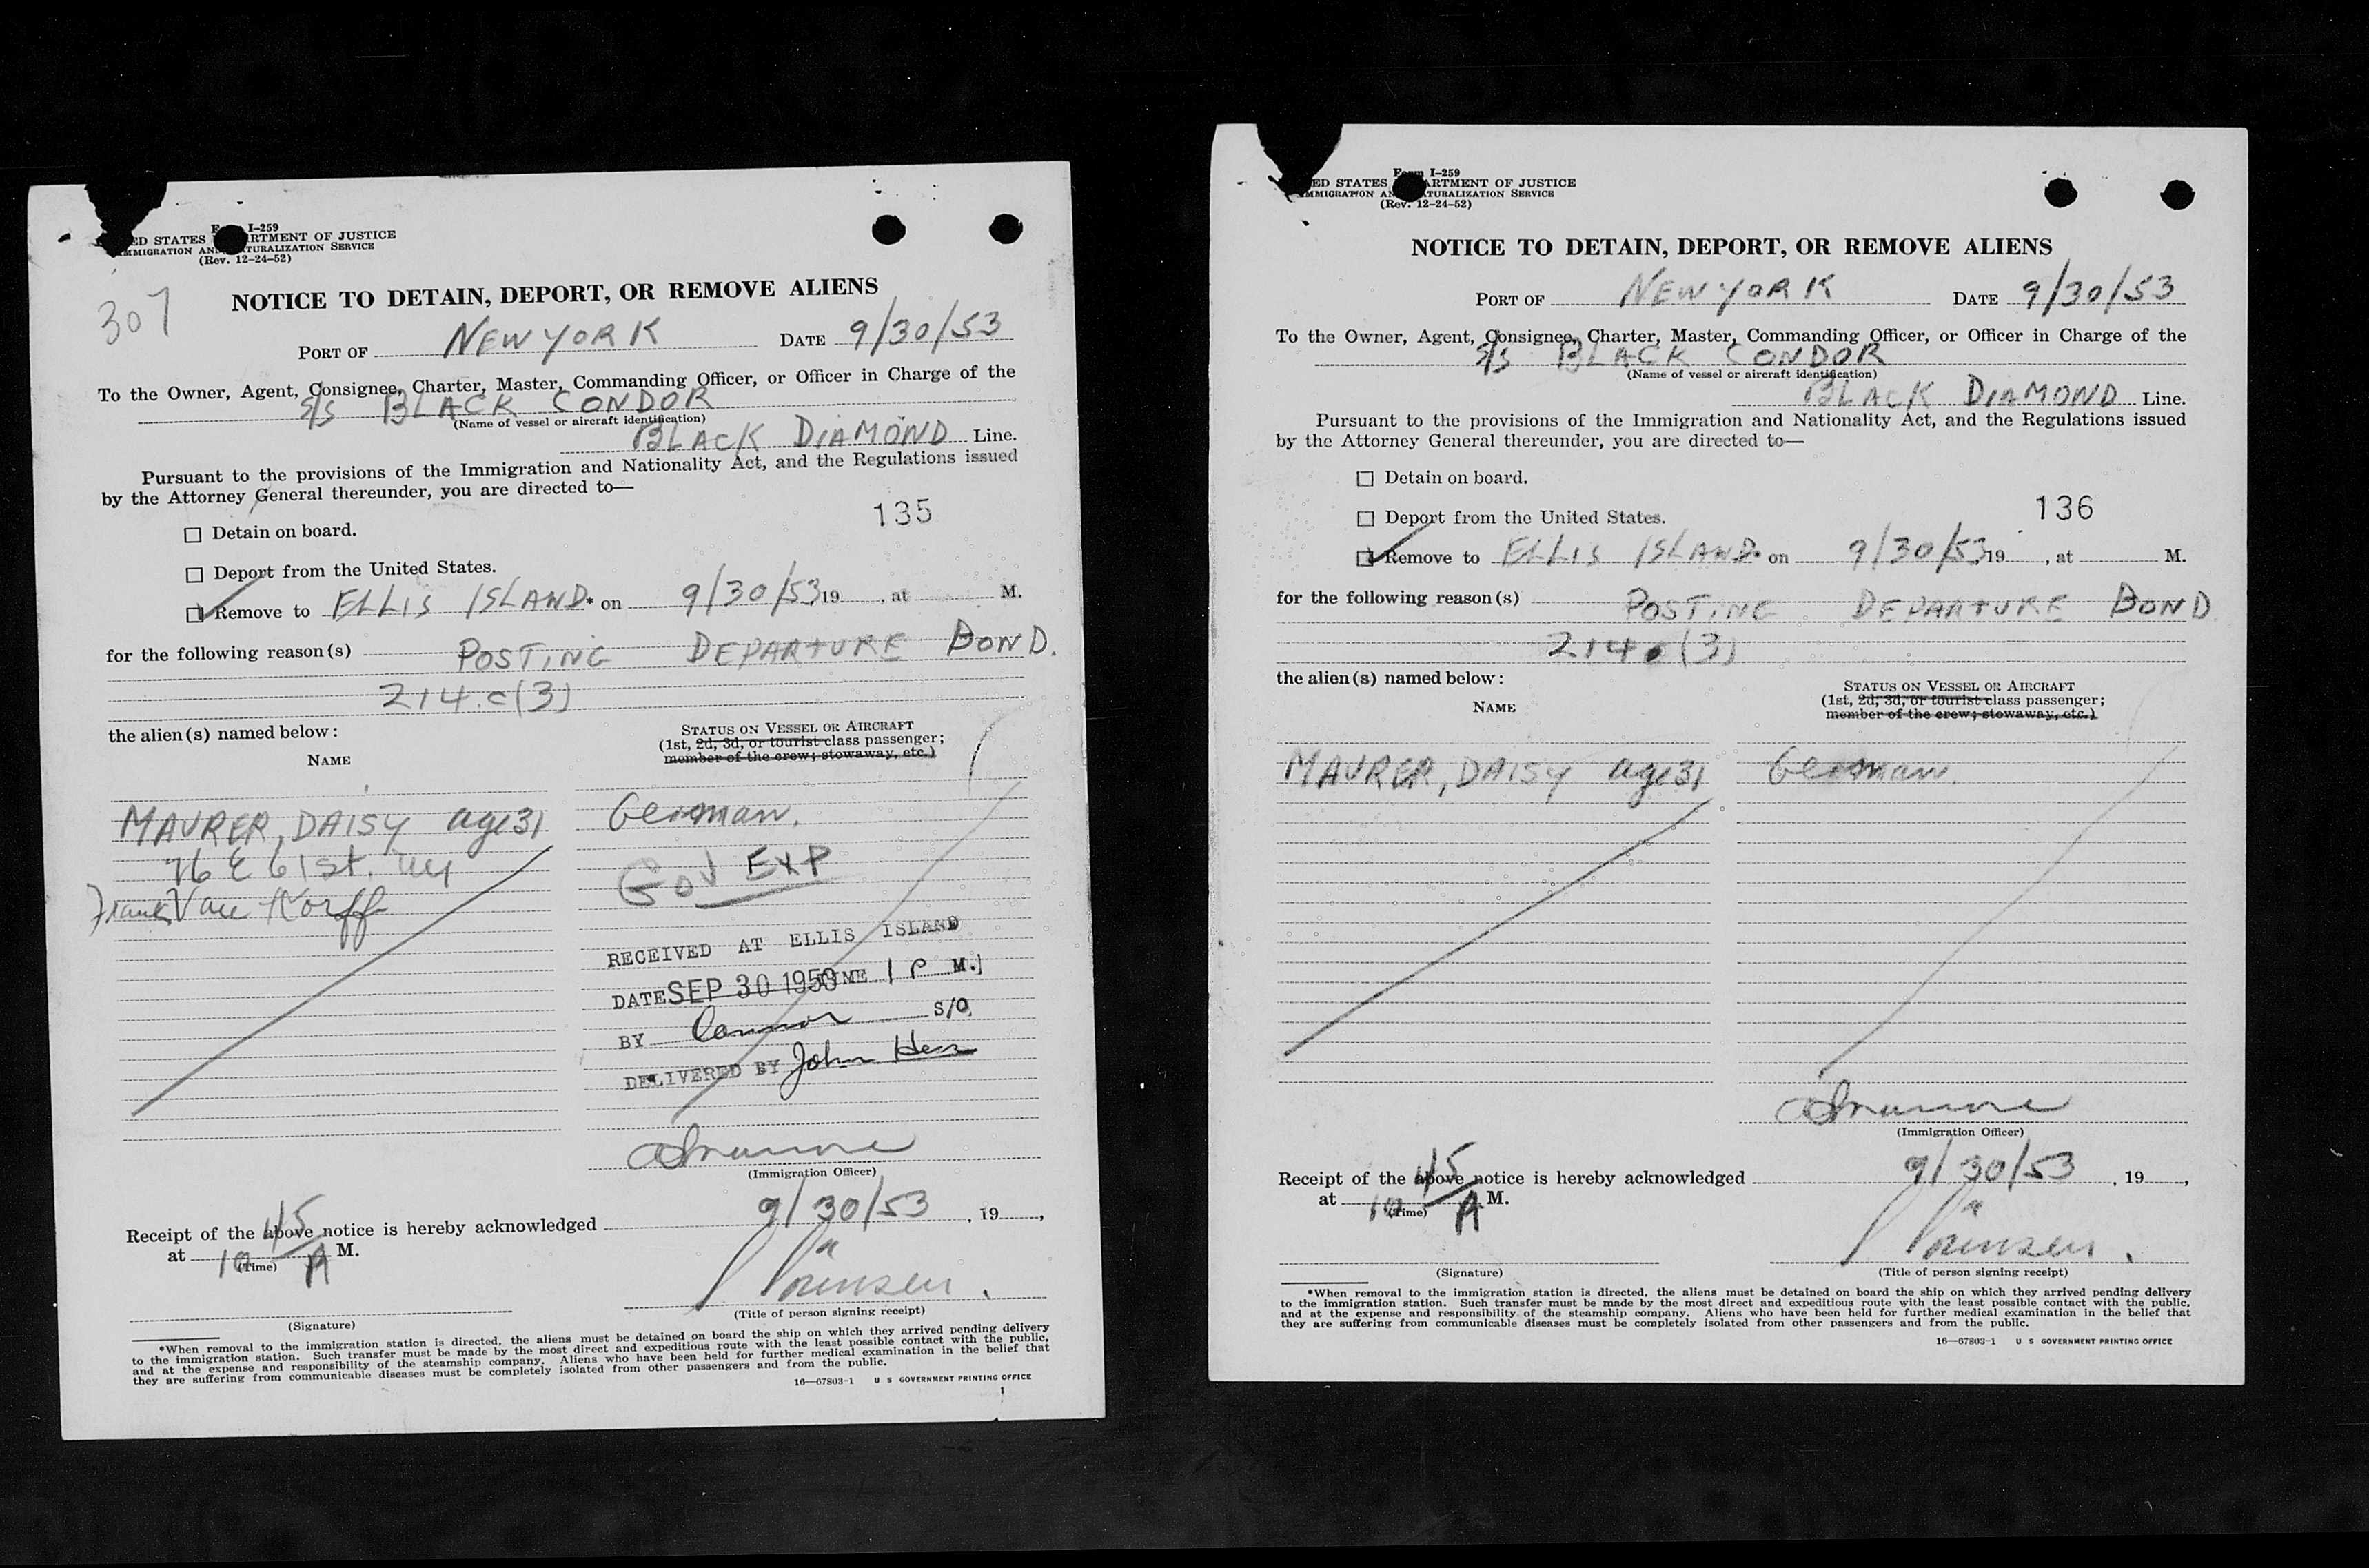 Form I–259
ED STATES DEPARTMENT OF JUSTICE
IMMIGRATION AND NATURALIZATION SERVICE
(Rev. 12–24–52)
307
NOTICE TO DETAIN, DEPORT, OR REMOVE ALIENS
PORT OF NEW YORK DATE 9/30/53
To the Owner, Agent, Consignee, Charter, Master, Commanding Officer, or Officer in Charge of the
S/S BLACK CONDOR
(Name of vessel or aircraft identification)
BLACK DIAMOND Line.
Pursuant to the provisions of the Immigration and Nationality Act, and the Regulations issued
by the Attorney General thereunder, you are directed to—
135
☐ Detain on board.
☐ Deport from the United States.
☑ Remove to ELLIS ISLAND* on 9/30/53, 19 , at M.
for the following reason(s) POSTING DEPARTURE BOND.
214.c(3)
the alien(s) named below:
NAME
STATUS ON VESSEL OR AIRCRAFT
(1st, 2d, 3d, or tourist class passenger;
member of the crew; stowaway, etc.)
MAURER, DAISY age 31 German.
76 E 61st. NY
Frank Van Korff
Gov EXP
RECEIVED AT ELLIS ISLAND
DATE SEP 30 1953 TIME 1 P M.
BY Connor S/O
DELIVERED BY John
(Immigration Officer)
Receipt of the above notice is hereby acknowledged 9/30/53, 19 ,
at 10 45 A M.
(Time)
(Signature)
(Title of person signing receipt)
*When removal to the immigration station is directed, the aliens must be detained on board the ship on which they arrived pending delivery
to the immigration station. Such transfer must be made by the most direct and expeditious route with the least possible contact with the public,
and at the expense and responsibility of the steamship company. Aliens who have been held for further medical examination in the belief that
they are suffering from communicable diseases must be completely isolated from other passengers and from the public.
16—67803-1 U S GOVERNMENT PRINTING OFFICE
Form I–259
ED STATES DEPARTMENT OF JUSTICE
IMMIGRATION AND NATURALIZATION SERVICE
(Rev. 12–24–52)
NOTICE TO DETAIN, DEPORT, OR REMOVE ALIENS
PORT OF NEW YORK DATE 9/30/53
To the Owner, Agent, Consignee, Charter, Master, Commanding Officer, or Officer in Charge of the
S/S BLACK CONDOR
(Name of vessel or aircraft identification)
BLACK DIAMOND Line.
Pursuant to the provisions of the Immigration and Nationality Act, and the Regulations issued
by the Attorney General thereunder, you are directed to—
☐ Detain on board.
136
☐ Deport from the United States.
☑ Remove to ELLIS ISLAND* on 9/30/53, 19 , at M.
for the following reason(s) POSTING DEPARTURE BOND
214.c(3)
the alien(s) named below:
NAME
STATUS ON VESSEL OR AIRCRAFT
(1st, 2d, 3d, or tourist class passenger;
member of the crew; stowaway, etc.)
MAURER, DAISY age 31 German.
(Immigration Officer)
Receipt of the above notice is hereby acknowledged 9/30/53, 19 ,
at 10 45 A M.
(Time)
(Signature)
(Title of person signing receipt)
*When removal to the immigration station is directed, the aliens must be detained on board the ship on which they arrived pending delivery
to the immigration station. Such transfer must be made by the most direct and expeditious route with the least possible contact with the public,
and at the expense and responsibility of the steamship company. Aliens who have been held for further medical examination in the belief that
they are suffering from communicable diseases must be completely isolated from other passengers and from the public.
16—67803-1 U S GOVERNMENT PRINTING OFFICE